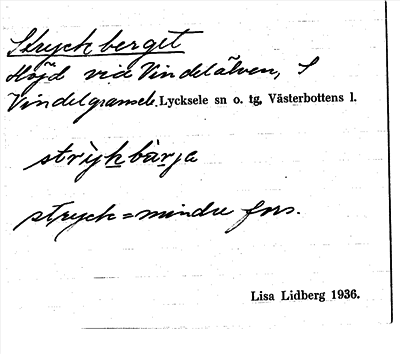 Stryckberget
Höjd vid Vindelälven, S
Vindelgransele. Lycksele sn o. tg, Västerbottens l.
strỳkbàrja
stryck = mindre fors.
Lisa Lidberg 1936.